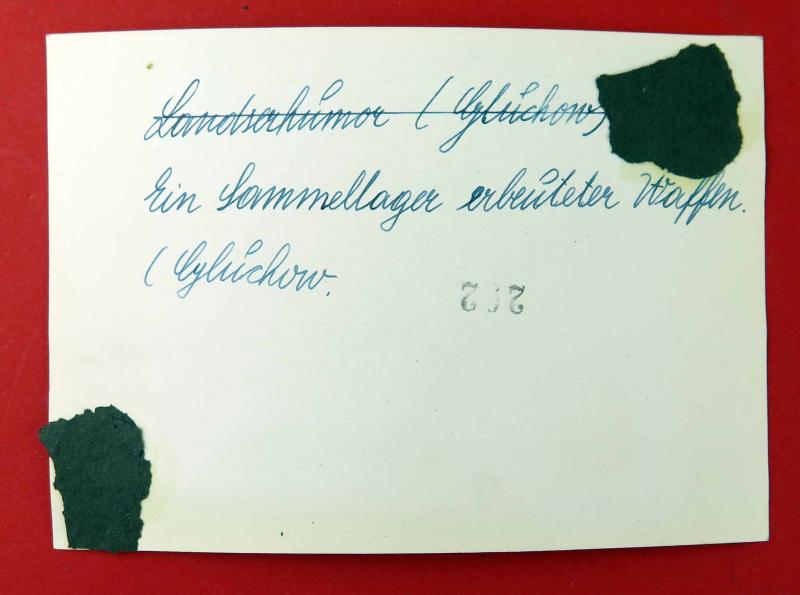 Landserhumor (Gluchow)
Ein Sammellager erbeuteter Waffen.
(Gluchow.